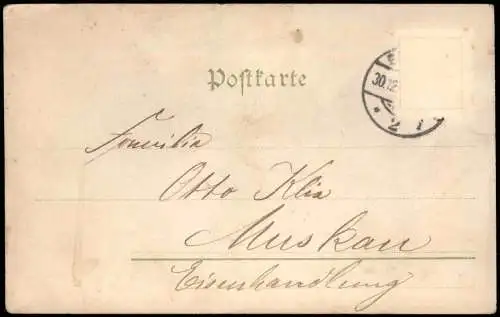 Postkarte
30.12
2 1
Familie
Otto Klix
Muskau
Eisenhandlung